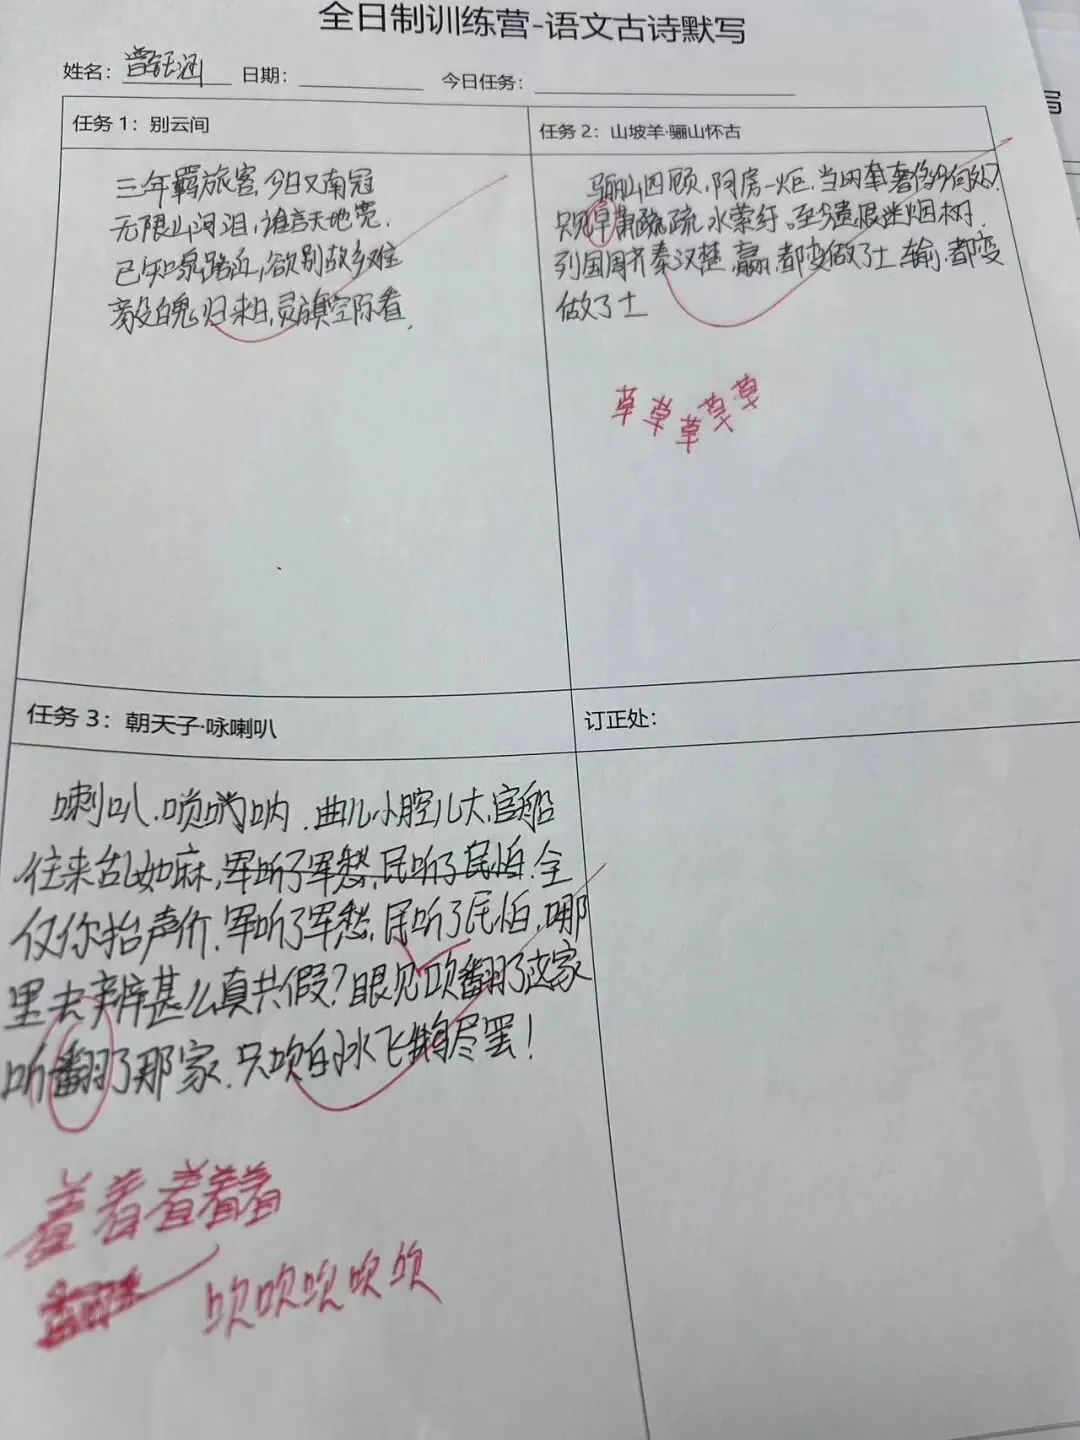 全日制训练营-语文古诗默写
姓名：曾钰涵 日期： 今日任务：
写
任务1：别云间
三年羁旅客,今日又南冠
无限山河泪,谁言天地宽.
已知泉路近,欲别故乡难
毅魄归来日,灵旗空际看.
任务2：山坡羊·骊山怀古
骊山四顾,阿房一炬,当时奢侈今何处?
只见草萧疏疏,水萦纡。至今遗恨迷烟树.
列国周齐秦汉楚,赢,都变做了土 输,都变
做了土
草草草草草
任务3：朝天子·咏喇叭
喇叭,唢呐,曲儿小腔儿大,官船
往来乱如麻,军听了军愁,民听了民怕.全
仗你抬声价.军听了军愁,民听了民怕.哪
里去辨甚么真共假?眼见吹翻了这家
听翻了那家.只吹的水飞鹅尽罢!
着着着着着
吹吹吹吹吹
订正处：